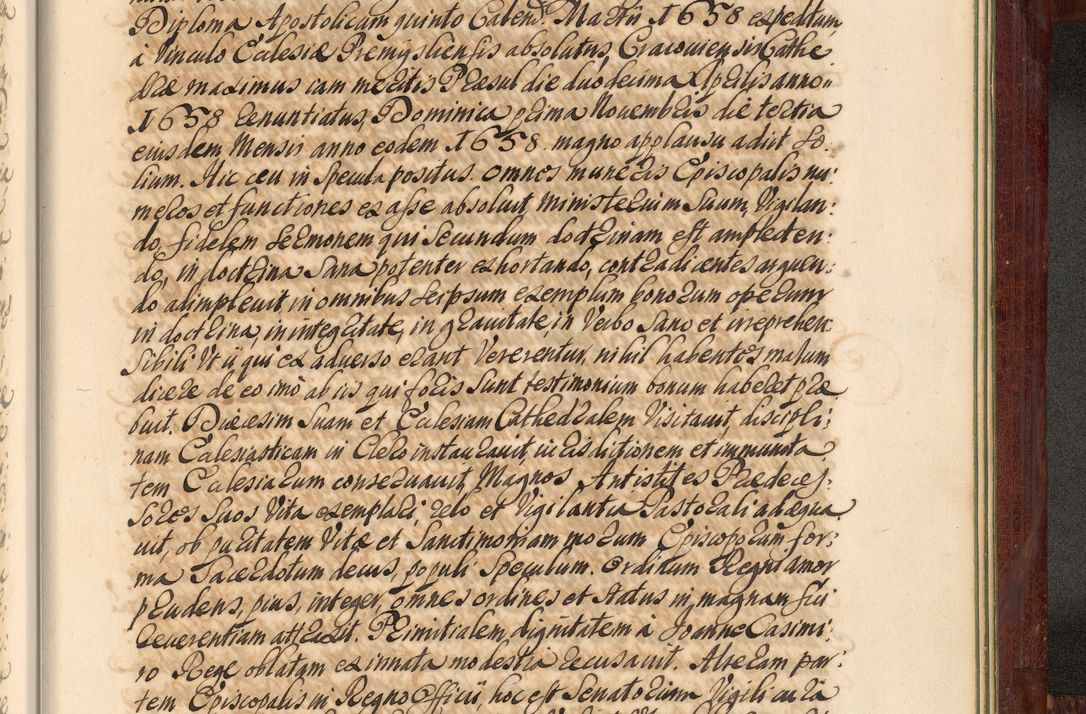 Diploma Apostolicam quinto Calend: Martii 1658 expeditam,
à vinculo Ecclesiæ Premysliensis absolutus, Cracoviensis Cathe
dræ maximus iam meritis Præsul die duodecima Aprilis anno
1658 renuntiatus, Dominica prima Novembris die tertia
eiusdem Mensis anno eodem 1658 magno applausu adiit So,
lium. Hic ceu in specula positus omnes muneris Episcopalis nu:
meros et functiones ex asse absoluit ministerium suum, Vigilan:
do, fidelem sermonem qui secundum doctrinam est amplecten:
do, in doctrina sana potenter exhortando, contradicentes arguen:
do adimpleuit, in omnibus seipsum exemplum bonorum operum
in doctrina, in integritate, in grauitate, in Verbo sano et irreprehen
sibili Ut ii qui ex adverso erant Vererentur, nihil habentes malum
dicere de eo imò ab iis qui foris sunt testimonium bonum haberet præ
buit. Diæcesim suam et Ecclesiam Cathedralem Visitauit, discipli;
nam Ecclesiasticam in Clero instaurauit, iurisditionem et immunita
tem Ecclesiarum conseruauit, Magnos Antistites Prædeces,
sores suos Vita exemplari, zelo et Vigilantia Pastorali adæqua
uit, ob puritatem Vitæ et Sanctimoniam morum Episcoporum for:
ma Sacerdotum decus, populi Speculum. Ordinum Regni amor
prudens, pius, integer, omnes ordines et status in magnam sui
reuerentiam attraxit. Primitialem dignitatem à Joanne Casimi:
ro Rege oblatam ex innata modestia recusauit. Alteram par:
tem Episcopalis in Regno Officii, hoc est Senatorium Vigili cura